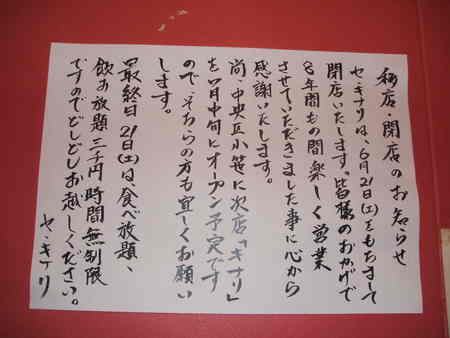 移店・閉店のお知らせ
ヤ・キナリは、6月21日(土)をもちまして
閉店いたします。皆様のおかげで
8年間もの間楽しく営業
させていただきました事に心から
感謝いたします。
尚、中央区小笹に次店「キナリ」
を月中旬にオープン予定です
ので、そちらの方も宜しくお願い
します。
最終日21日(土)は食べ放題、
飲み放題三千円、時間無制限
ですのでどしどしお越しください。
ヤ・キナリ